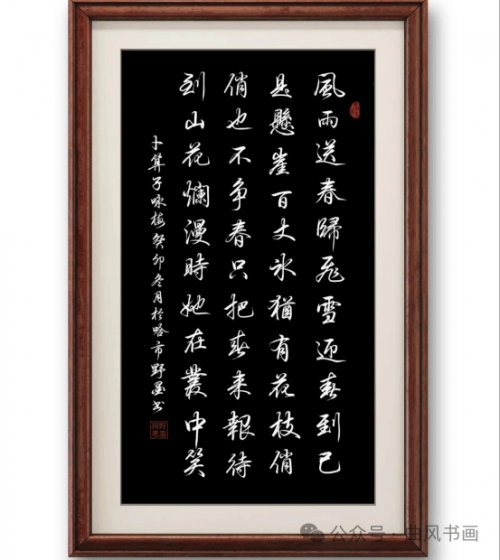 風雨送春歸飛雪迎春到已
是懸崖百丈冰猶有花枝俏
俏也不争春只把春来報待
到山花爛漫時她在叢中笑
卜算子咏梅癸卯冬月於哈市野墨书
公众号·曲风书画